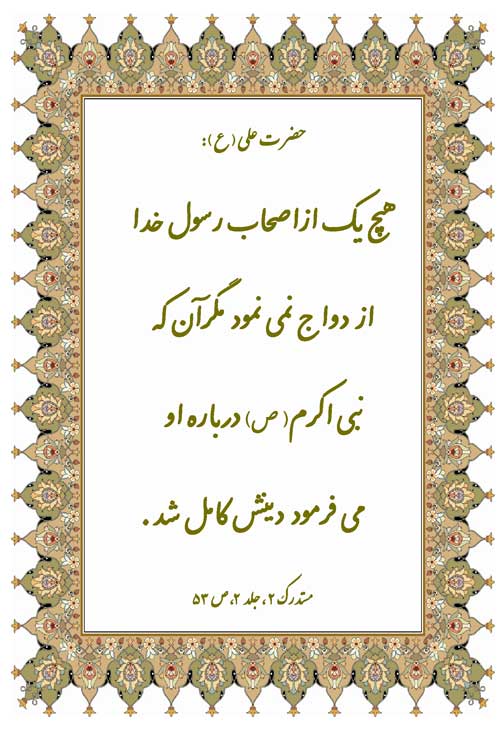 حضرت علی (ع):
هیچ یک از اصحاب رسول خدا
ازدواج نمی نمود مگر آن که
نبی اکرم (ص) درباره او
می فرمود دینش کامل شد.
مستدرک ۲، جلد ۲، ص ۵۳